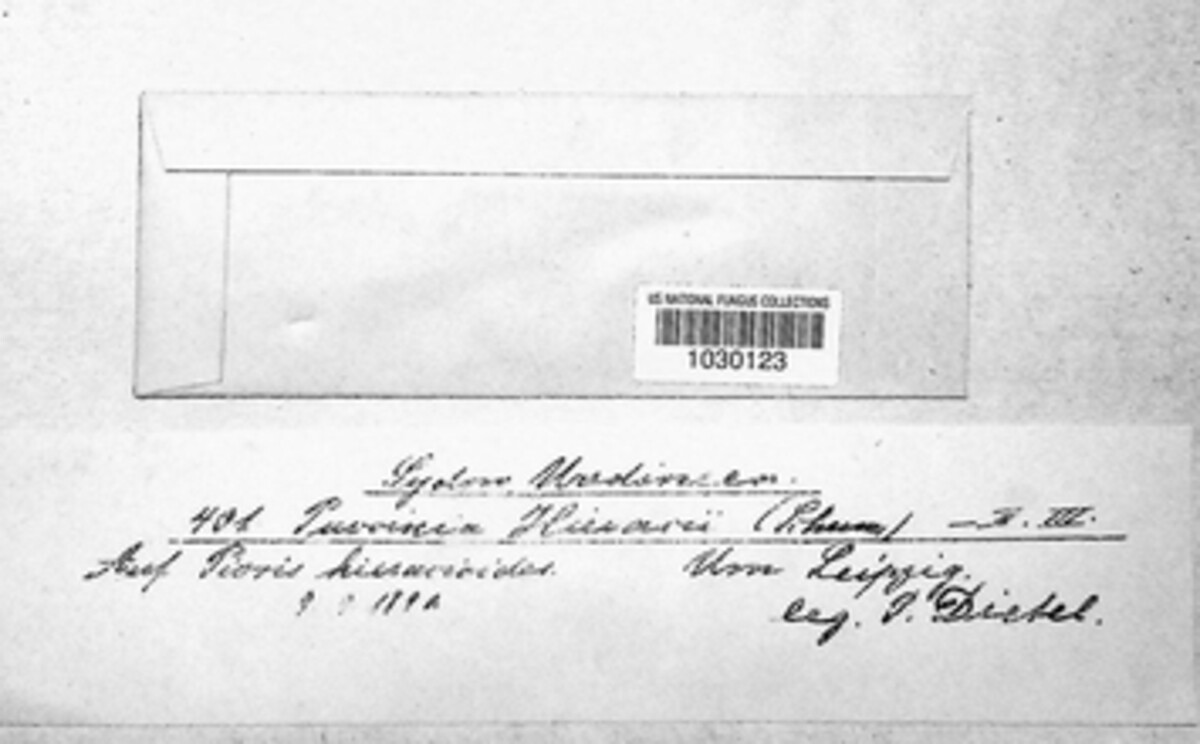 US NATIONAL FUNGUS COLLECTIONS
1030123
Sydow, Uredineen.
Puccinia Hieracii (Schum) – II. III.
Auf Picris hieracioides. Um Leipzig.
leg. P. Dietel.